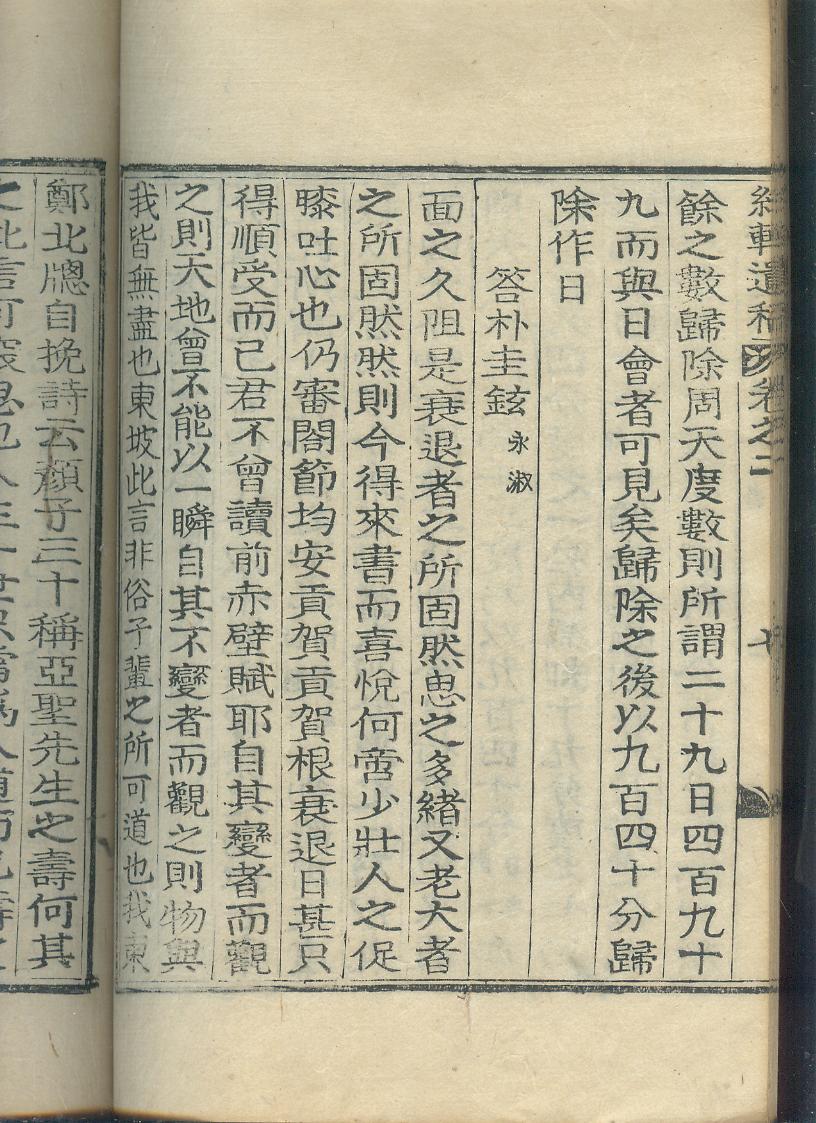 軒遺稿 卷之二 七
餘之數歸除周天度數則所謂二十九日四百九十
九而與日會者可見矣歸除之後以九百四十分歸
除作日
答朴圭鉉 永淑
面之久阻是衰退者之所固然思之多緖又老大者
之所固然然則今得來書而喜悅何啻少壯人之促
膝吐心也仍審閤節均安貢賀貢賀根衰退日甚只
得順受而已君不曾讀前赤壁賦耶自其變者而觀
之則天地曾不能以一瞬自其不變者而觀之則物與
我皆無盡也東坡此言非俗子輩之所可道也我東
鄭北牕自挽詩云顏子三十稱亞聖先生之壽何其
之此言可